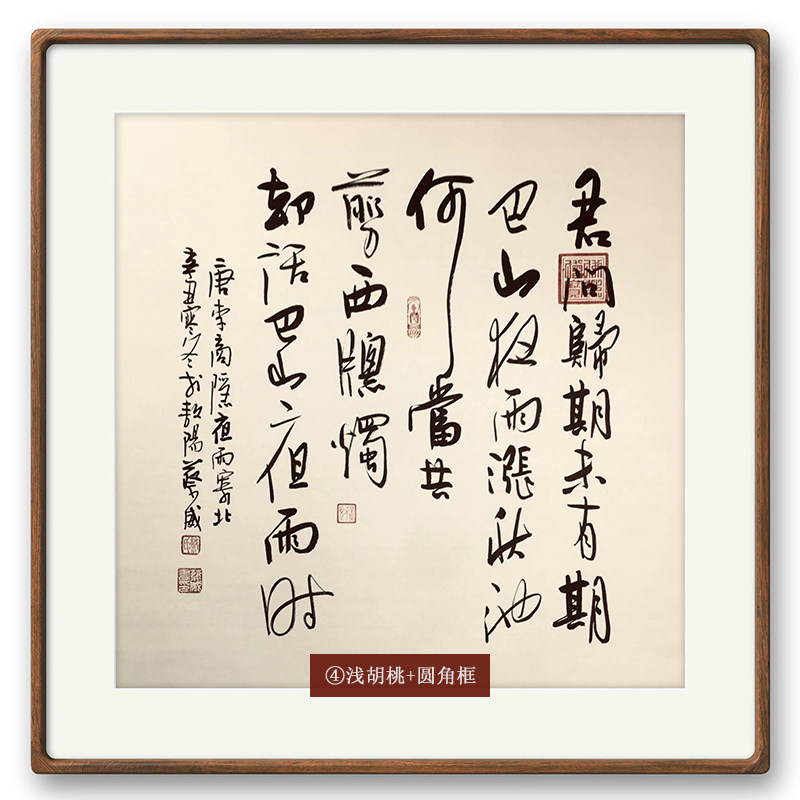 君问歸期未有期
巴山夜雨漲秋池
何當共
剪西牕燭
却话巴山夜雨时
唐李商隱夜雨寄北
辛丑寒冬於敖陽蔡威
④浅胡桃+圆角框